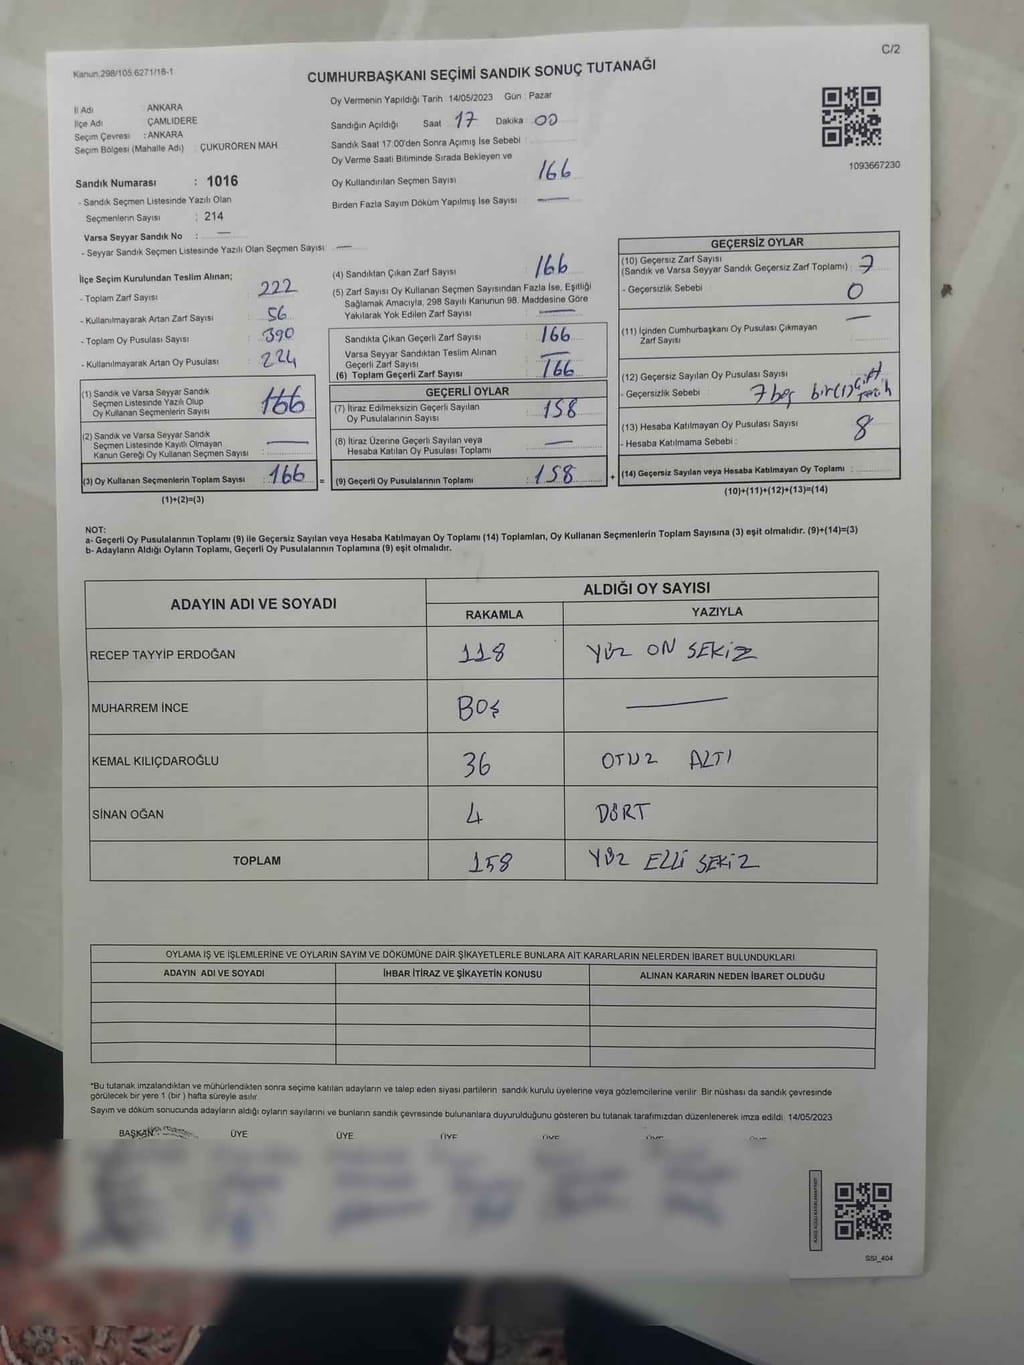 C/2
Kanun.298/105.6271/16-1
CUMHURBAŞKANI SEÇİMİ SANDIK SONUÇ TUTANAĞI
İl Adı ANKARA
İlçe Adı ÇAMLIDERE
Seçim Çevresi : ANKARA
Seçim Bölgesi (Mahalle Adı) ÇUKURÖREN MAH
Sandık Numarası : 1016
- Sandık Seçmen Listesinde Yazılı Olan
Seçmenlerin Sayısı : 214
Varsa Seyyar Sandık No : —
- Seyyar Sandık Seçmen Listesinde Yazılı Olan Seçmen Sayısı : —
Oy Vermenin Yapıldığı Tarih : 14/05/2023 Gün : Pazar
Sandığın Açıldığı Saat 17 Dakika 00
Sandık Saat 17.00'den Sonra Açımış İse Sebebi :
Oy Verme Saati Bitiminde Sırada Bekleyen ve
Oy Kullandırılan Seçmen Sayısı 166
Birden Fazla Sayım Döküm Yapılmış İse Sayısı : —
1093667230
İlçe Seçim Kurulundan Teslim Alınan;
- Toplam Zarf Sayısı : 222
- Kullanılmayarak Artan Zarf Sayısı : 56
- Toplam Oy Pusulası Sayısı : 390
- Kullanılmayarak Artan Oy Pusulası : 224
(1) Sandık ve Varsa Seyyar Sandık
Seçmen Listesinde Yazılı Olup
Oy Kullanan Seçmenlerin Sayısı : 166
(2) Sandık ve Varsa Seyyar Sandık
Seçmen Listesinde Kayıtlı Olmayan
Kanun Gereği Oy Kullanan Seçmen Sayısı : —
(3) Oy Kullanan Seçmenlerin Toplam Sayısı : 166 =
(1)+(2)=(3)
(4) Sandıktan Çıkan Zarf Sayısı : 166
(5) Zarf Sayısı Oy Kullanan Seçmen Sayısından Fazla İse, Eşitliği
Sağlamak Amacıyla, 298 Sayılı Kanunun 98. Maddesine Göre
Yakılarak Yok Edilen Zarf Sayısı : —
Sandıkta Çıkan Geçerli Zarf Sayısı : 166
Varsa Seyyar Sandıktan Teslim Alınan
Geçerli Zarf Sayısı : —
(6) Toplam Geçerli Zarf Sayısı : 166
GEÇERLİ OYLAR
(7) İtiraz Edilmeksizin Geçerli Sayılan
Oy Pusulalarının Sayısı : 158
(8) İtiraz Üzerine Geçerli Sayılan veya
Hesaba Katılan Oy Pusulası Toplamı : —
(9) Geçerli Oy Pusulalarının Toplamı : 158 +
GEÇERSİZ OYLAR
(10) Geçersiz Zarf Sayısı
(Sandık ve Varsa Seyyar Sandık Geçersiz Zarf Toplamı) : 7
- Geçersizlik Sebebi : 0
(11) İçinden Cumhurbaşkanı Oy Pusulası Çıkmayan
Zarf Sayısı : —
(12) Geçersiz Sayılan Oy Pusulası Sayısı :
- Geçersizlik Sebebi : 7 boş bir(1) çift
(13) Hesaba Katılmayan Oy Pusulası Sayısı : 8
- Hesaba Katılmama Sebebi :
(14) Geçersiz Sayılan veya Hesaba Katılmayan Oy Toplamı :
(10)+(11)+(12)+(13)=(14)
NOT:
a- Geçerli Oy Pusulalarının Toplamı (9) ile Geçersiz Sayılan veya Hesaba Katılmayan Oy Toplamı (14) Toplamları, Oy Kullanan Seçmenlerin Toplam Sayısına (3) eşit olmalıdır. (9)+(14)=(3)
b- Adayların Aldığı Oyların Toplamı, Geçerli Oy Pusulalarının Toplamına (9) eşit olmalıdır.
ADAYIN ADI VE SOYADI ALDIĞI OY SAYISI
RAKAMLA YAZIYLA
RECEP TAYYİP ERDOĞAN 118 YÜZ ON SEKİZ
MUHARREM İNCE BOŞ —
KEMAL KILIÇDAROĞLU 36 OTUZ ALTI
SİNAN OĞAN 4 DÖRT
TOPLAM 158 YÜZ ELLİ SEKİZ
OYLAMA İŞ VE İŞLEMLERİNE VE OYLARIN SAYIM VE DÖKÜMÜNE DAİR ŞİKAYETLERLE BUNLARA AİT KARARLARIN NELERDEN İBARET BULUNDUKLARI
ADAYIN ADI VE SOYADI İHBAR İTİRAZ VE ŞİKAYETİN KONUSU ALINAN KARARIN NEDEN İBARET OLDUĞU
*Bu tutanak imzalandıktan ve mühürlendikten sonra seçime katılan adayların ve talep eden siyasi partilerin sandık kurulu üyelerine veya gözlemcilerine verilir. Bir nüshası da sandık çevresinde
görülecek bir yere 1 (bir) hafta süreyle asılır.
Sayım ve döküm sonucunda adayların aldığı oyların sayılarını ve bunların sandık çevresinde bulunanlara duyurulduğunu gösteren bu tutanak tarafımızdan düzenlenerek imza edildi. 14/05/2023
BAŞKAN ÜYE ÜYE ÜYE ÜYE ÜYE ÜYE
SSI_404